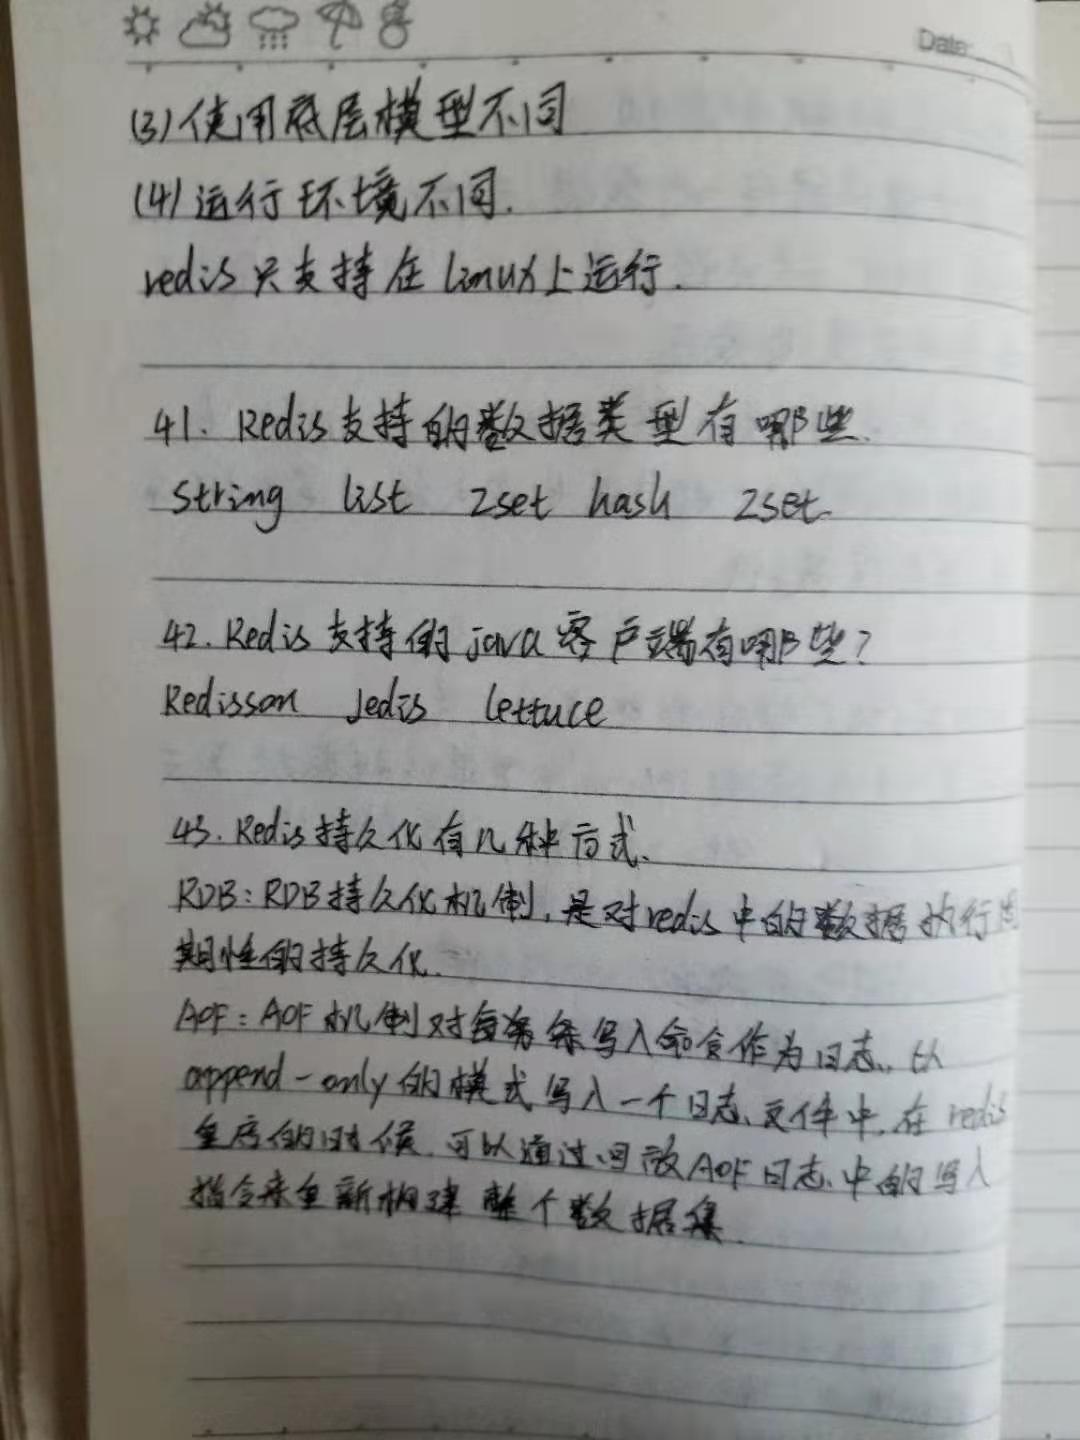 Date:
(3)使用底层模型不同
(4)运行环境不同.
redis只支持在linux上运行.
41. Redis支持的数据类型有哪些.
string list zset hash zset.
42. Redis支持的java客户端有哪些?
Redisson Jedis lettuce
43. Redis持久化有几种方式.
RDB: RDB持久化机制, 是对redis中的数据执行周
期性的持久化.
AOF: AOF机制对每条写入命令作为日志, 以
append-only的模式写入一个日志文件中, 在redis
重启的时候, 可以通过回放AOF日志中的写入
指令来重新构建整个数据集.